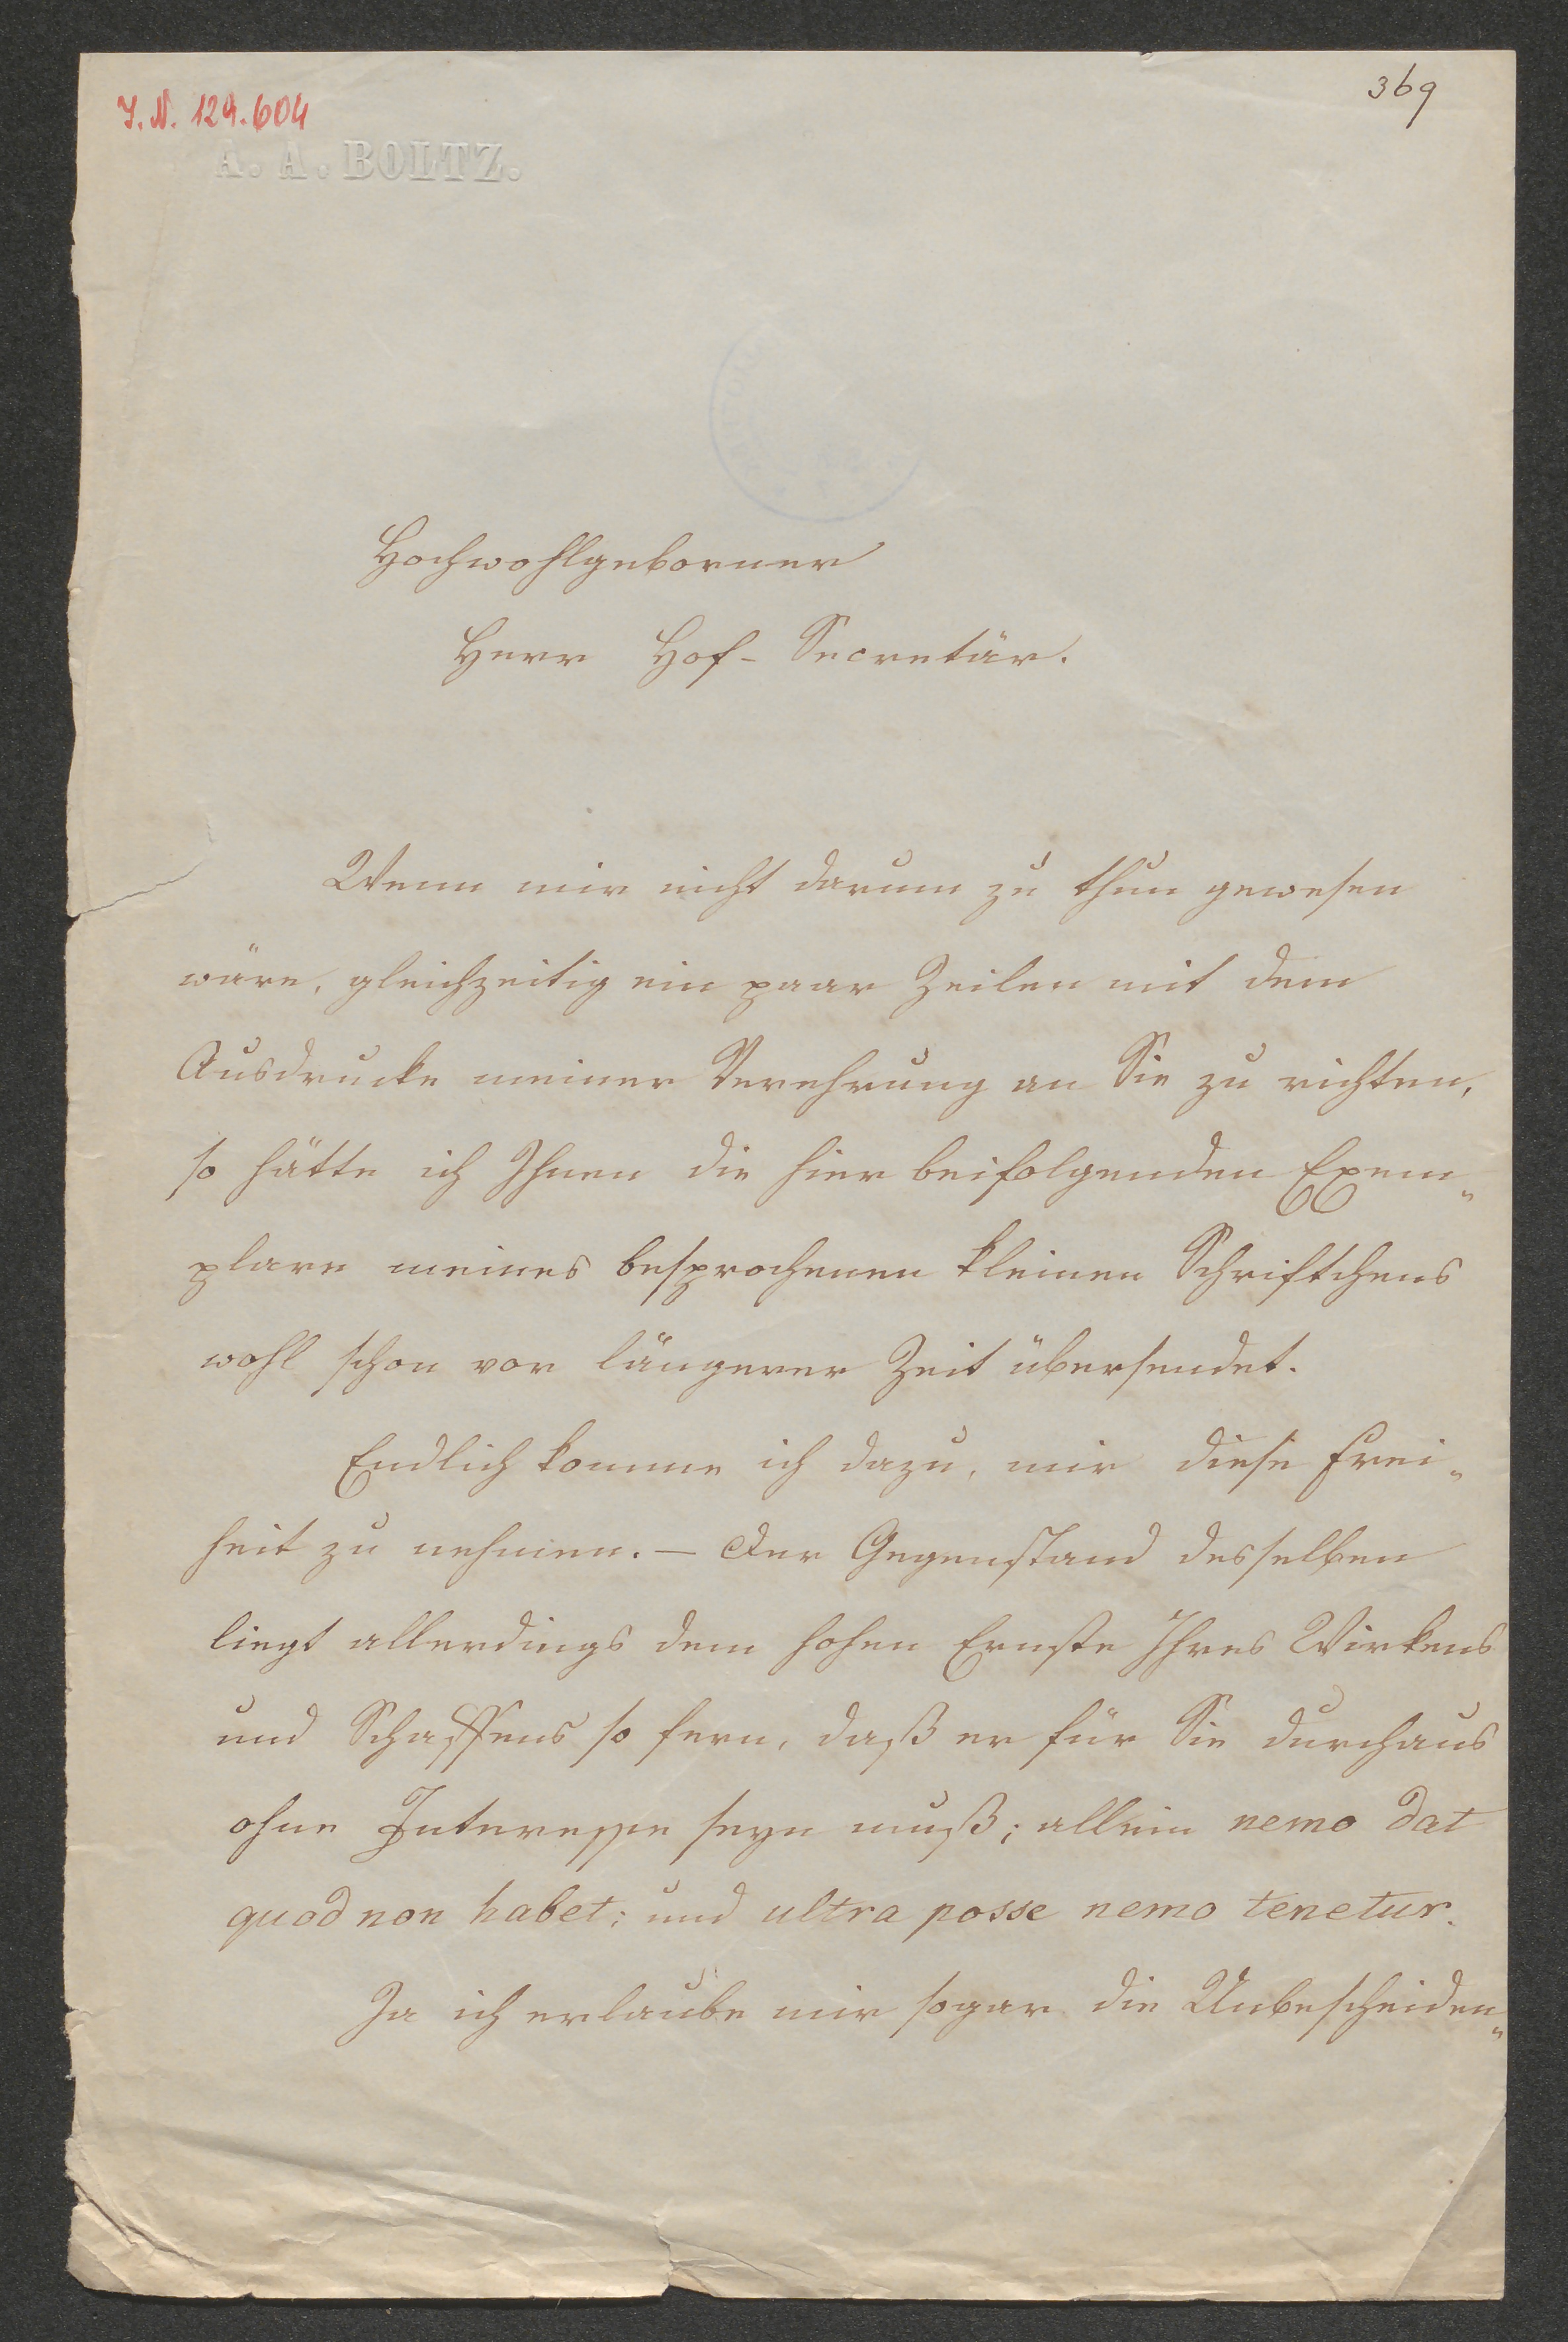 369
I. N. 124.604
A. A. BOLTZ.
Hochwohlgeborner
Herr Hof-Secretär.
Wenn mir nicht darum zu thun gewesen
wäre, gleichzeitig ein paar Zeilen mit dem
Ausdrucke meiner Verehrung an Sie zu richten,
so hätte ich Ihnen die hier beifolgenden Exem„
plare meines besprochenen kleinen Schriftchens
wohl schon vor längerer Zeit übersendet.
Endlich komme ich dazu, mir diese Frei„
heit zu nehmen. — Der Gegenstand desselben
liegt allerdings dem hohen Ernste Ihres Wirkens
und Schaffens so fern, daß er für Sie durchaus
ohne Interesse seyn muß; allein nemo dat
quod non habet; und ultra posse nemo tenetur.
Ja ich erlaube mir sogar die Unbescheiden„